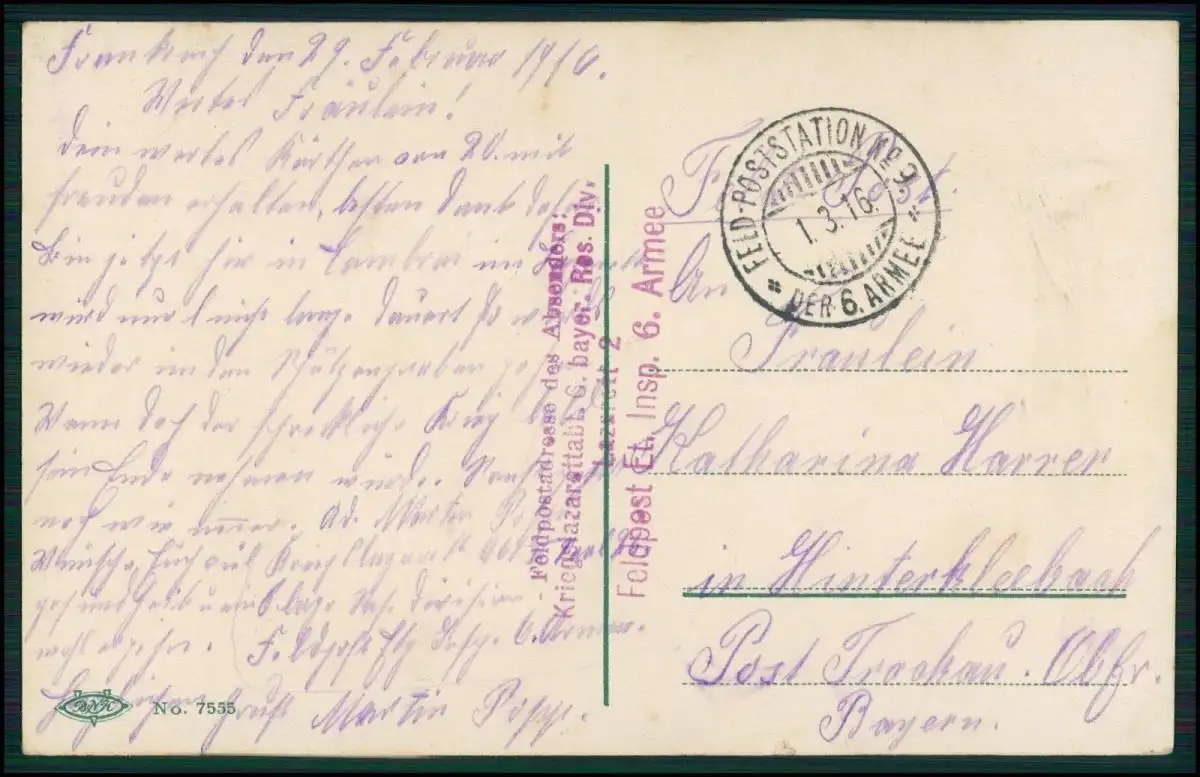 Frankreich den 29. Februar 1916.
Wertes Fräulein!
Dein wertes Kärtchen vom 20. mit
Freuden erhalten, besten Dank dafür
Bin jetzt hier in Cambrai im
wird nur nicht lange dauert
wieder in den Schützengraben
Wenn doch der schreckliche Krieg
sein Ende nehmen würde.
noch wie immer. Ad. Martin Popp
Wünsche Euch auch Kriegslazarett Abt.
gesundheit u. 6. bayr. Res. Division
wohl Feldpost Etp. Insp. 6. Armee.
Gruß Martin Popp.
Feldpostadresse des Absenders:
Kriegslazarettabt. 6. bayer. Res. Div.
Lazarett 2
Feldpost Et. Insp. 6. Armee
FELD-POSTSTATION No. 9
1. 3. 16.
DER 6. ARMEE
Feldpost.
An
Fräulein
Katharina Harrer
in Hinterkleebach
Post Trockau. Obfr.
Bayern.
No. 7555